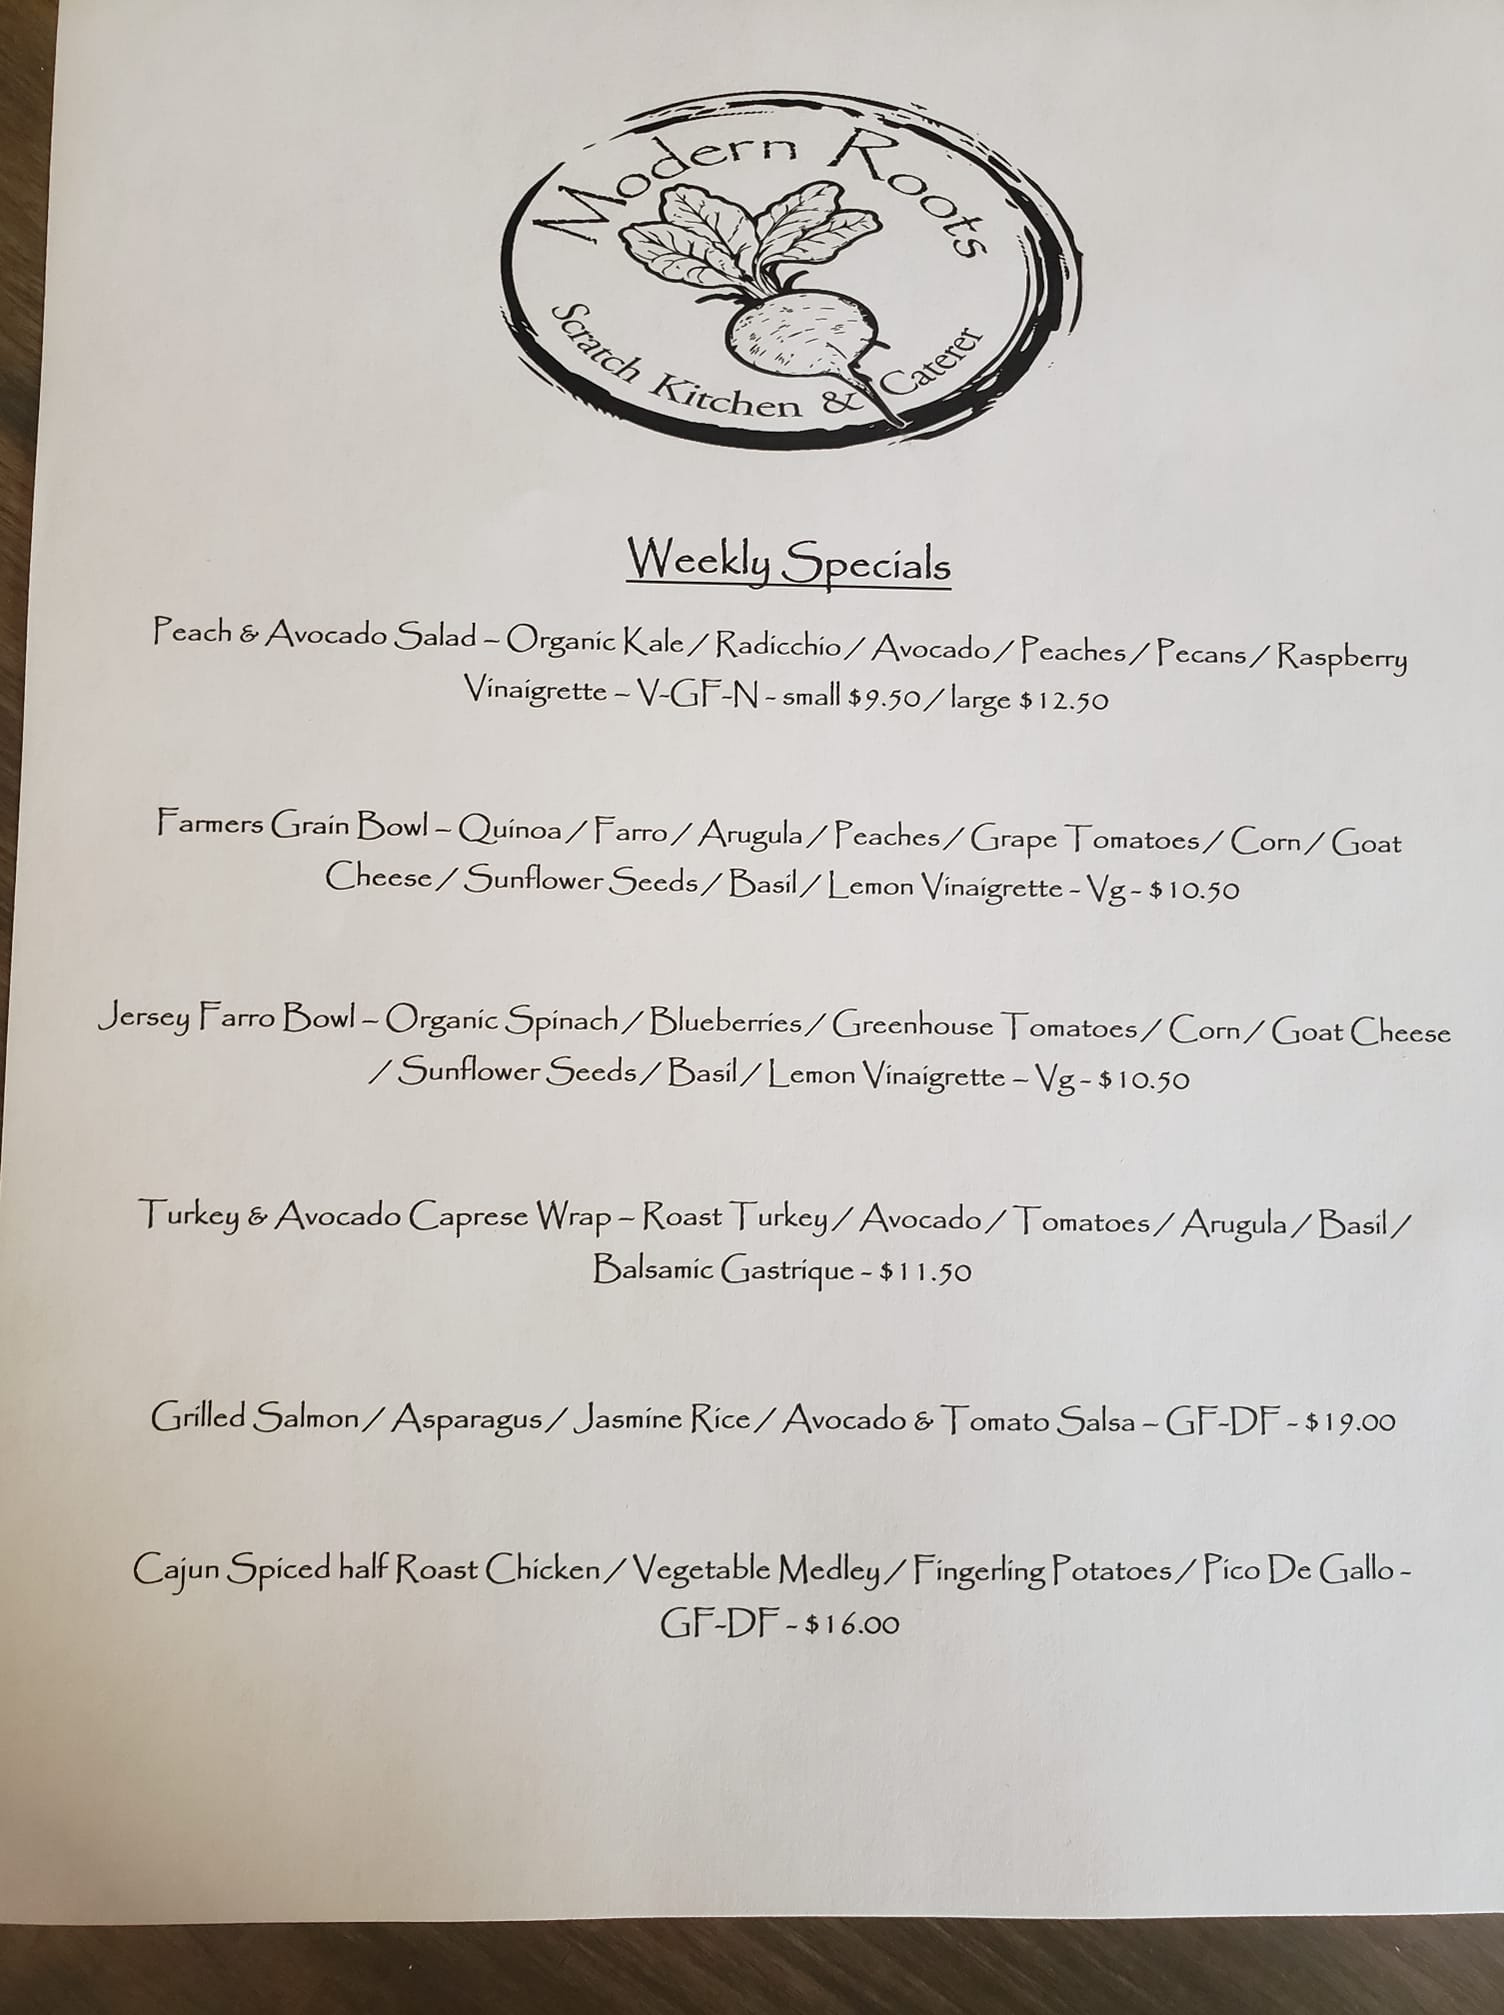 Modern Roots
Scratch Kitchen & Caterer
Weekly Specials
Peach & Avocado Salad – Organic Kale / Radicchio / Avocado / Peaches / Pecans / Raspberry
Vinaigrette – V-GF-N - small $9.50 / large $12.50
Farmers Grain Bowl – Quinoa / Farro / Arugula / Peaches / Grape Tomatoes / Corn / Goat
Cheese / Sunflower Seeds / Basil / Lemon Vinaigrette - Vg - $10.50
Jersey Farro Bowl – Organic Spinach / Blueberries / Greenhouse Tomatoes / Corn / Goat Cheese
/ Sunflower Seeds / Basil / Lemon Vinaigrette – Vg - $10.50
Turkey & Avocado Caprese Wrap – Roast Turkey / Avocado / Tomatoes / Arugula / Basil /
Balsamic Gastrique - $11.50
Grilled Salmon / Asparagus / Jasmine Rice / Avocado & Tomato Salsa – GF-DF - $19.00
Cajun Spiced half Roast Chicken / Vegetable Medley / Fingerling Potatoes / Pico De Gallo -
GF-DF - $16.00